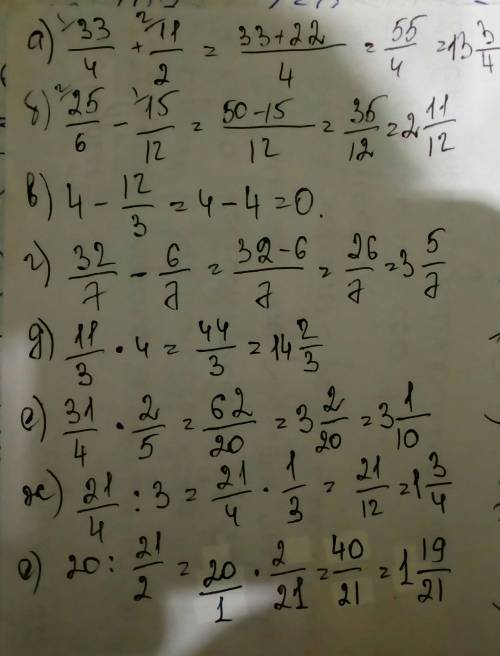 а) 33/4 + 11/2 = (33+22)/4 = 55/4 = 13 3/4
б) 25/6 - 15/12 = (50-15)/12 = 35/12 = 2 11/12
в) 4 - 12/3 = 4 - 4 = 0.
г) 32/7 - 6/7 = (32-6)/7 = 26/7 = 3 5/7
д) 11/3 · 4 = 44/3 = 14 2/3
е) 31/4 · 2/5 = 62/20 = 3 2/20 = 3 1/10
ж) 21/4 : 3 = 21/4 · 1/3 = 21/12 = 1 3/4
е) 20 : 21/2 = 20/1 · 2/21 = 40/21 = 1 19/21